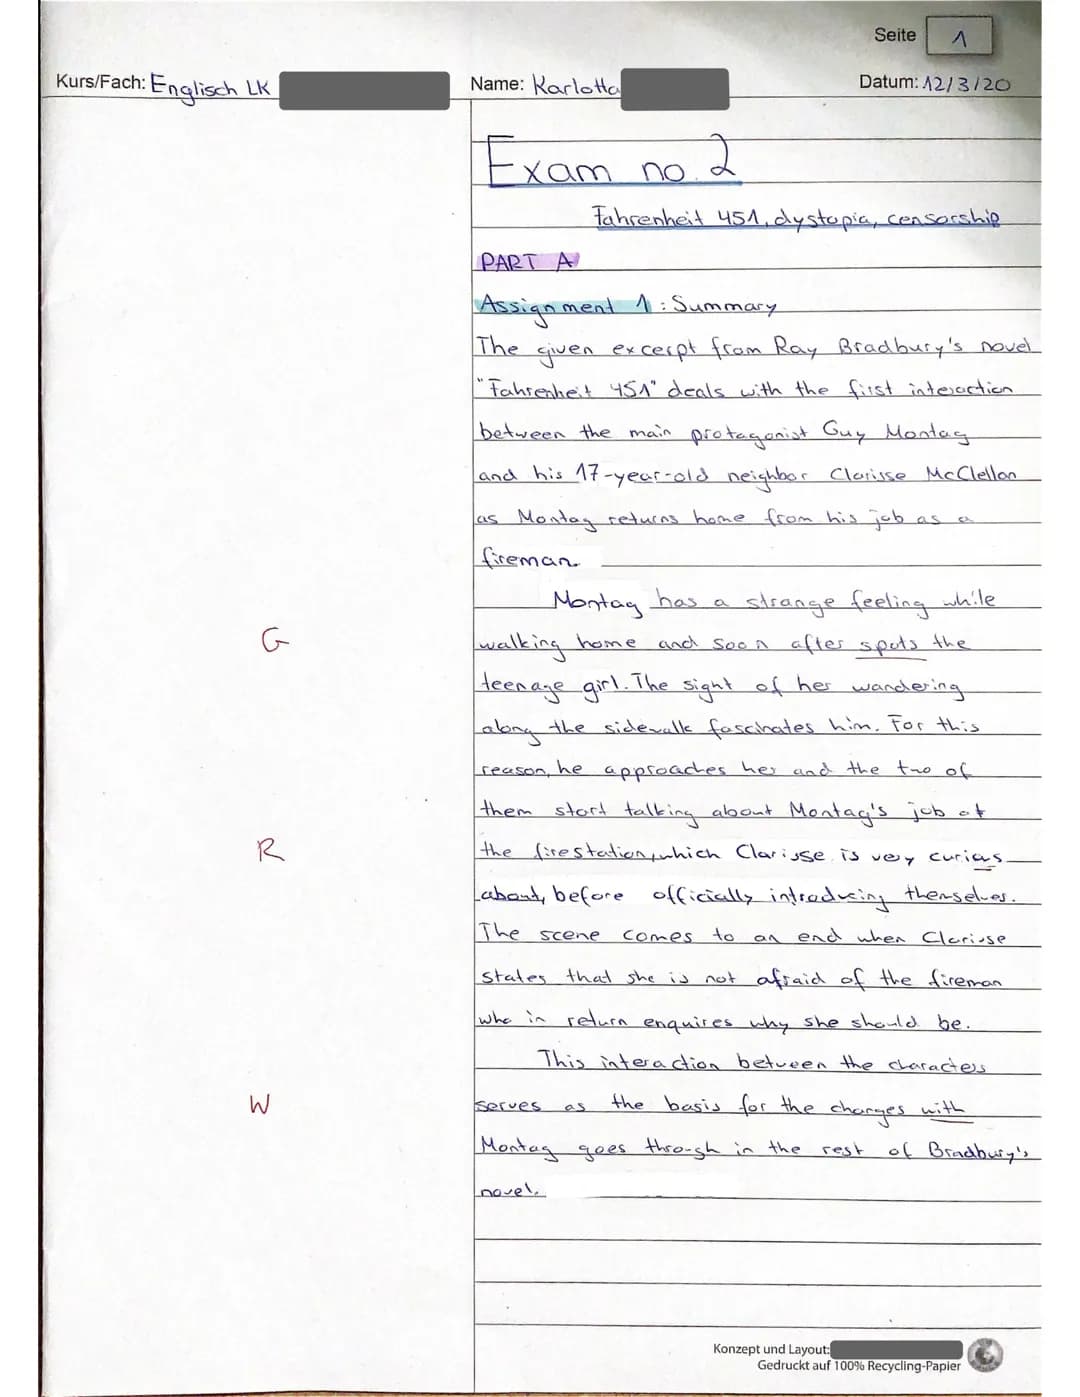 Seite 1
Kurs/Fach: Englisch LK Name: Karlotta Datum: 12/3/20
Exam no. 2
Fahrenheit 451, dystopia, censorship
PART A
Assignment 1: Summary
The given excerpt from Ray Bradbury's novel
"Fahrenheit 451" deals with the first interaction
between the main protagonist Guy Montag
and his 17-year-old neighbor Clarisse McClellan
as Montag returns home from his job as a
fireman.
Montag has a strange feeling while
G walking home and soon after spots the
teenage girl. The sight of her wandering
along the sidewalk fascinates him. For this
reason, he approaches her and the two of
them start talking about Montag's job at
R the firestation, which Clarisse is very curios
about, before officially introducing themselves.
The scene comes to an end when Clarisse
states that she is not afraid of the fireman
who in return enquires why she should be.
This interaction between the characters
W serves as the basis for the changes with
Montag goes through in the rest of Bradbury's
novel.
Konzept und Layout:
Gedruckt auf 100% Recycling-Papier